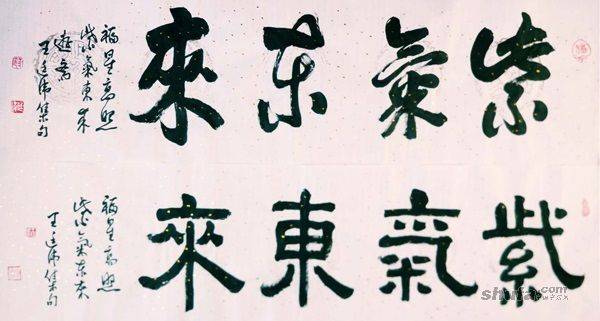 紫氣東來
福星高照
紫氣東來
王 集句
紫氣東來
福星高照
紫氣東來
王 集句